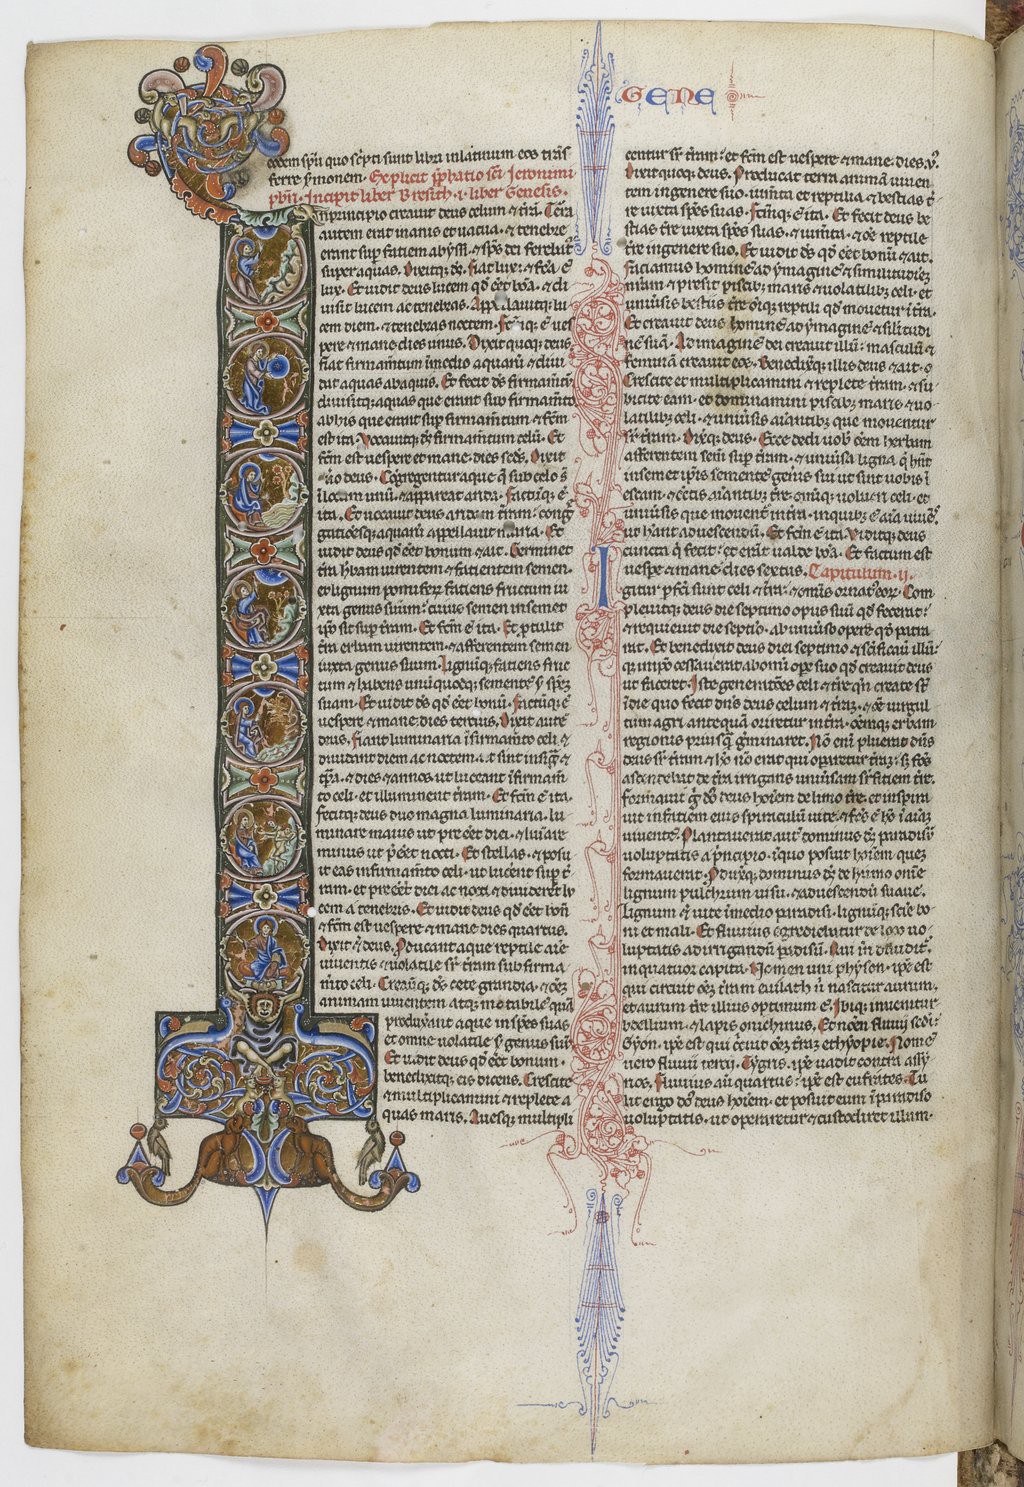 GENE
eodem spu quo scpti sunt libri inlatinum eos trãs
ferre s̃monem. Explicit p̃phatio sc̃i Jeronimi
pbr̃i. Incipit liber Bresith. i. liber Genesis.
Inprincipio creauit deus celum ⁊ t̃rã. Tr̃a
autem erat inanis et uacua. ⁊ tenebre
erant sup̃ fatiem abyssi. ⁊ sp̃s dei ferebat̃
super aquas. Dixitq; ds̃. fiat lux. ⁊ fc̃a ẽ
lux. Et uidit deus lucem qd̃ eẽt bõa. ⁊ di
uisit lucem ac tenebras. App̃ellauitq; lu
cem diem. ⁊ tenebras noctem. Fc̃mq; ẽ ues
pere ⁊ mane dies unus. Dixit quoq; deus.
fiat firmam̃tum ĩmedio aquarũ ⁊ diui
dat aquas abaquis. Et fecit ds̃ firmam̃tũ.
diuisitq; aquas que erant sub firmam̃to
abhis que erant sup̃ firmam̃tum. ⁊ fc̃m
est ita. Vocauitq; ds̃ firmam̃tum celũ. Et
fc̃m est uespere et mane. dies secd̃s. Dixit
ũo deus. Cõgregentur aque q̃ sub celo s̃
ĩlocum unũ. ⁊ appareat arida. Factũq; ẽ
ita. Et uocauit deus aridam t̃ram. cong̃
gationesq; aquarũ appellauit maria. Et
uidit deus qd̃ eẽt bonum. ⁊ ait. Germinet
t̃ra h̃bam uirentem ⁊ fatientem semen.
et lignum pomifer̃ fatiens fructum iu
xta genus suum. cuius semen insemet
ip̃o sit sup̃ t̃ram. Et fc̃m ẽ ita. Et p̃tulit
t̃ra erbam uirentem. ⁊ afferentem semen
iuxta genus suum. Lignũq; fatiens fruc
tum ⁊ habens unũ quodq; sementẽ s̃ spẽz
suam. Et uidit ds̃ qd̃ eẽt bonũ. Factũq; ẽ
uespere ⁊ mane dies tertius. Dixit autẽ
deus. Fiant luminaria ĩ firmam̃to celi. ⁊
diuidant diem ac noctem. ⁊ sint insig̃ ⁊
tp̃ra. ⁊ dies ⁊ annos. ut luceant ĩ firmam̃
to celi. et illuminent t̃ram. Et fc̃m ẽ ita.
fecitq; deus duo magna luminaria. lu
minare maius ut preeẽt diei. ⁊ luĩare
minus ut p̃eẽt nocti. Et stellas. ⁊ posu
it eas infirmam̃to celi. ut lucerent sup̃ t̃
ram. et preeẽt diei ac nocti. ⁊ diuiderẽt lu
cem a tenebris. Et uidit deus qd̃ eẽt bon̄
⁊ fc̃m est uespere ⁊ mane dies quartus.
Dixit ẽ deus. Producant aque reptile aĩe
uiuentis. ⁊ uolatile sr̃ t̃ram sub firma
m̃to celi. Creauitq; ds̃ cete grandia. ⁊ oẽz
animam uiuentem atq; motabilẽ quã
produxerant aque inspẽs suas
et omne uolatile s̃ genus suũ.
Et uidit deus qd̃ eẽt bonum.
benedixitq; eis dicens. Crescite
⁊ multiplicamini ⁊ replete a
quas maris. Auesq; multipli
centur sr̃ t̃ram. et fc̃m est uespere ⁊ mane. dies. v̊.
Dixit quoq; deus. Producat terra animã uiuen
tem ingenere suo. ium̃ta et reptilia. ⁊ bestias t̃
re iuxta spẽs suas. Fc̃mq; ẽ ita. Et fecit deus be
stias t̃re iuxta spẽs suas. ⁊ ium̃ta. ⁊ oẽ reptile
t̃re ingenere suo. Et uidit ds̃ qd̃ eẽt bonũ. ⁊ ait.
Faciamus hominẽ ad ymaginẽ ⁊ similitudinẽ
nr̃am. et presit piscib; maris ⁊ uolatilib; celi. et
uniũsis bestiis t̃re oĩq; reptili qd̃ mouetur ĩ t̃ra.
Et creauit deus hominẽ ad ymaginẽ ⁊ silitudi
nẽ suã. Ad imaginẽ dei creauit illũ. masculũ ⁊
feminã creauit eos. Benedixitq; illis deus ⁊ ait.
Crescite et multiplicamini ⁊ replete t̃ram. ⁊ su
bicite eam. et dominamini piscib; maris ⁊ uo
latilibus celi. ⁊ uniũsis aĩantibus que mouentur
sr̃ t̃ram. Dixitq; deus. Ecce dedi uob̃ oẽm herbam
afferentem sem̃ sup̃ t̃ram. ⁊ uniũsa ligna q̃ hñt
insemet ip̃is sementẽ gen̄is sui ut sint uobis ĩ
escam. ⁊ cc̃tis aĩantibus t̃re. om̃iq; uolucri celi. et
uniũsis que mouent̃ int̃ra. inquibus ẽ aĩa uiuẽs
ut hãnt aduescendũ. Et fc̃m ẽ ita. Viditq; deus
cuncta q̃ fecit. et erãnt ualde bõa. Et factum est
uesp̃e ⁊ mane. dies sextus. Capitulum. ij.
Igitur p̃fc̃i sunt celi ⁊ t̃ra. ⁊ om̃is ornat̃ eor̃. Com
pleuitq; deus die septimo opus suũ qd̃ fecerat.
⁊ requieuit die septĩo. ab uniũso opere qd̃ patra
rat. Et benedixit deus diei septimo ⁊ sc̃ificauit illũ.
quia ĩ ip̃o cessauerat abom̃i ope suo qd̃ creauit deus
ut faceret. Iste generatões celi ⁊ t̃re qñ create st̃
ĩ die quo fecit dñs deus celum ⁊ t̃rã. ⁊ oẽ uirgul
tum agri antequã oriretur int̃ra. oẽmq; erbam
regionis priusq̃ g̃minaret. Nõ eni pluerat dñs
deus sr̃ t̃ram. ⁊ hõ nõ erat qui op̃aretur t̃rã. sz̃ fõs
ascendebat de t̃ra irrigans uniũsam sr̃fitiem t̃re.
formauit g̃ dñs deus hoĩem de limo t̃re. et inspira
uit infatiem eius spiraculũ uite. ⁊ fc̃s ẽ hõ ĩ aĩaz
uiuentẽ. Plantauerat autẽ dominus ds̃ paradisũ
uoluptatis a p̃ncipio. ĩ quo posuit hoĩem quez
formauerat. Produxitq; dominus ds̃ de humo om̃e
lignum pulchrum uisu. ⁊ aduescendũ suaue.
lignum ẽ uite ĩ medio paradisi. lignũq; scĩe bo
ni et mali. Et fluuius egrediebatur de loco uo
luptatis ad irrigandũ p̃adisũ. Qui ĩn diuidit̃
inquatuor capita. Nomen uni physon. ip̃e est
qui circuit oẽz t̃ram euilath ũ nascitur aurum.
et aurum t̃re illius optimum ẽ. Ibiq; inuenitur
bdellium. ⁊ lapis onichinus. Et nõen fluuij scdi.
Gyon. ip̃e est qui c̃cuit oẽz t̃raz ethyopie. Nomẽ
uero fluuii tercii. Tygris. ip̃e uadit contra assy
rios. Fluuius aũ quartus. ip̃e est eufrates. Tu
lit ergo dñs deus hoĩem. et posuit eum ĩ paradiso
uoluptatis. ut operaretur ⁊ custodiret illum.